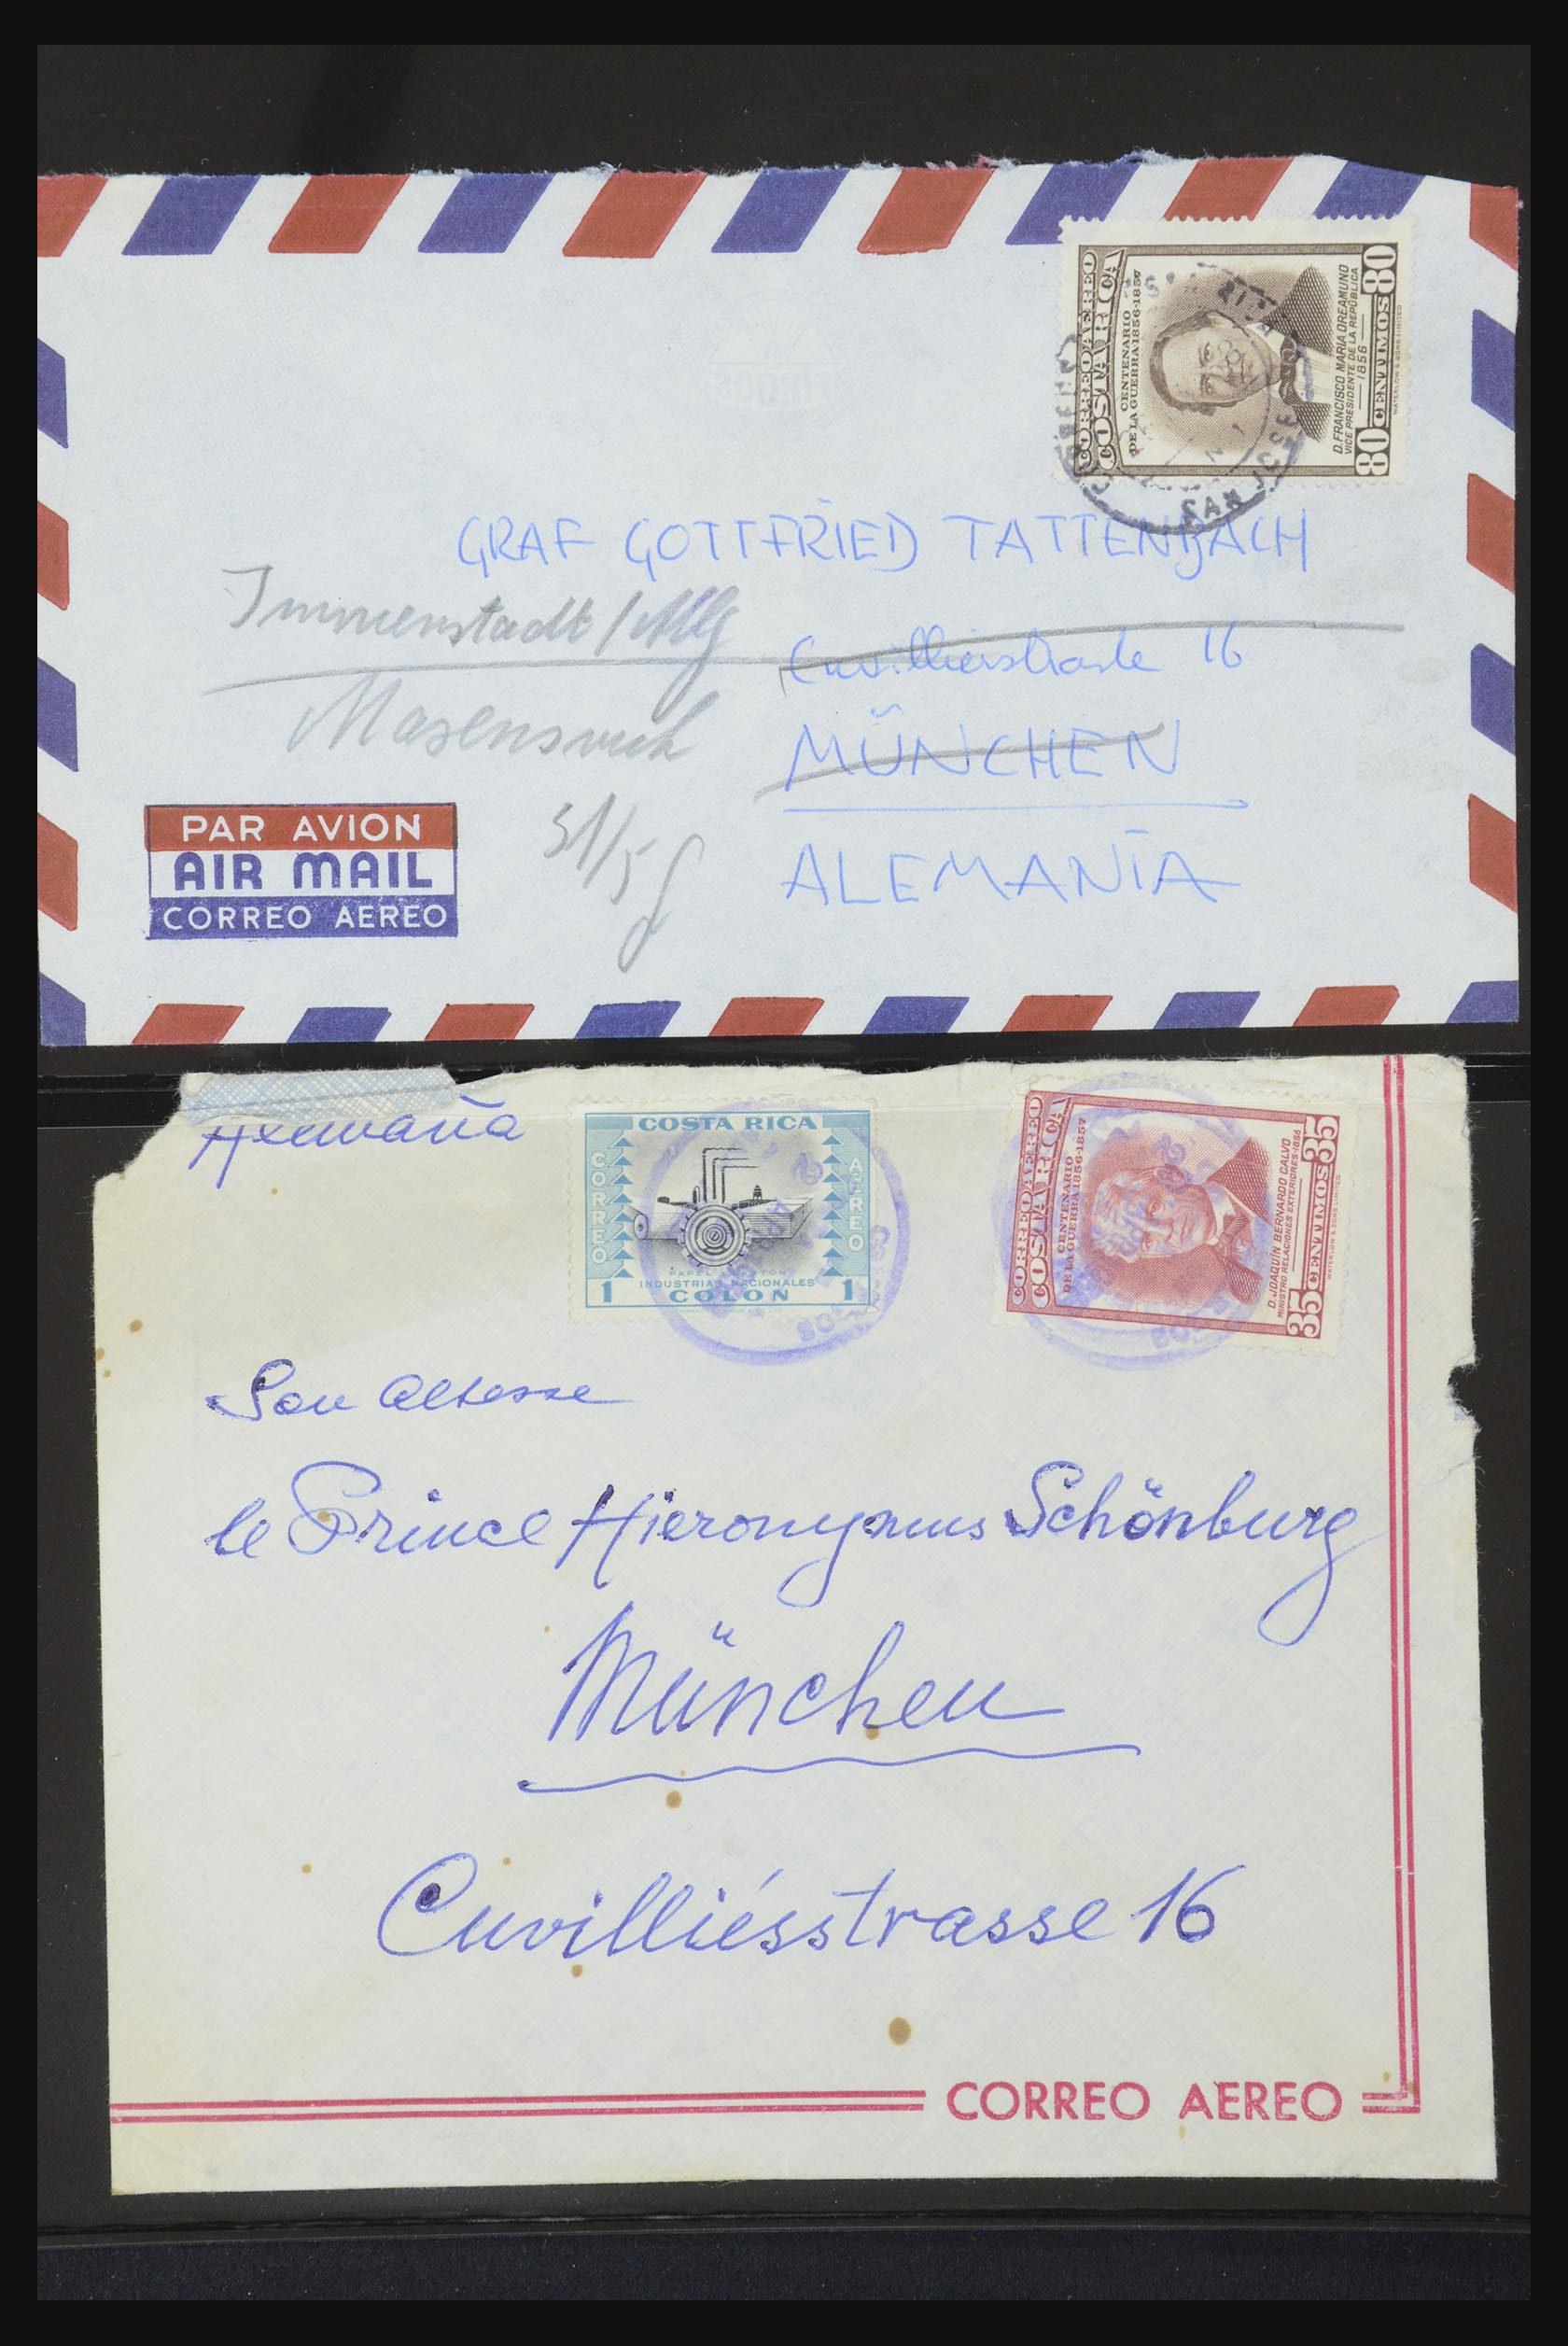 CORREO AEREO
COSTA RICA
CENTENARIO
DE LA GUERRA·1856-1857
D. FRANCISCO MARIA OREAMUNO
VICE PRESIDENTE DE LA REPÚBLICA
1856
80 CENTIMOS 80
WATERLOW & SONS LIMITED
SAN JOSE
GRAF GOTTFRIED TATTENBACH
Immenstadt / Allg
16
MÜNCHEN
ALEMANIA
31/5
PAR AVION
AIR MAIL
CORREO AEREO
Alemaña
COSTA RICA
CORREO
AEREO
INDUSTRIAS NACIONALES
1 COLON 1
CORREO AEREO
COSTA RICA
CENTENARIO
DE LA GUERRA·1856-1857
D. JOAQUIN BERNARDO CALVO
MINISTRO RELACIONES EXTERIORES·1856
35 CENTIMOS 35
WATERLOW & SONS LIMITED
Son Altesse
le Prince Hieronymus Schönburg
München
Cuvilliésstrasse 16
CORREO AEREO